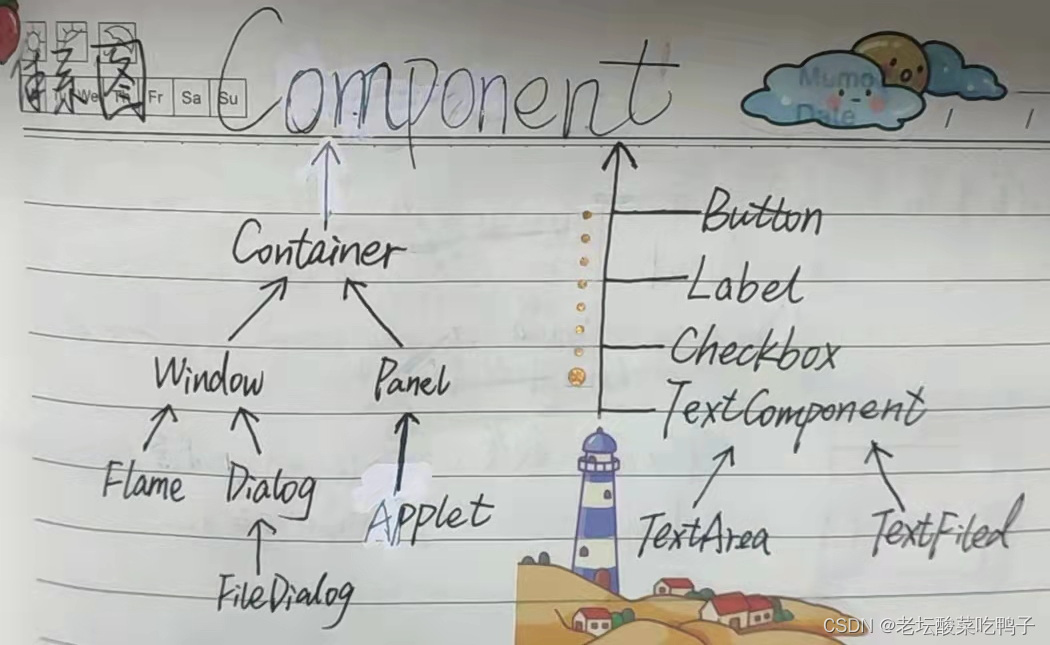 体系图 Component
We Th Fr Sa Su
Mumo
Date
/ /
Container
Button
Label
Window Panel
Checkbox
TextComponent
Flame Dialog
Applet
TextArea TextFiled
FileDialog
CSDN @老坛酸菜吃鸭子